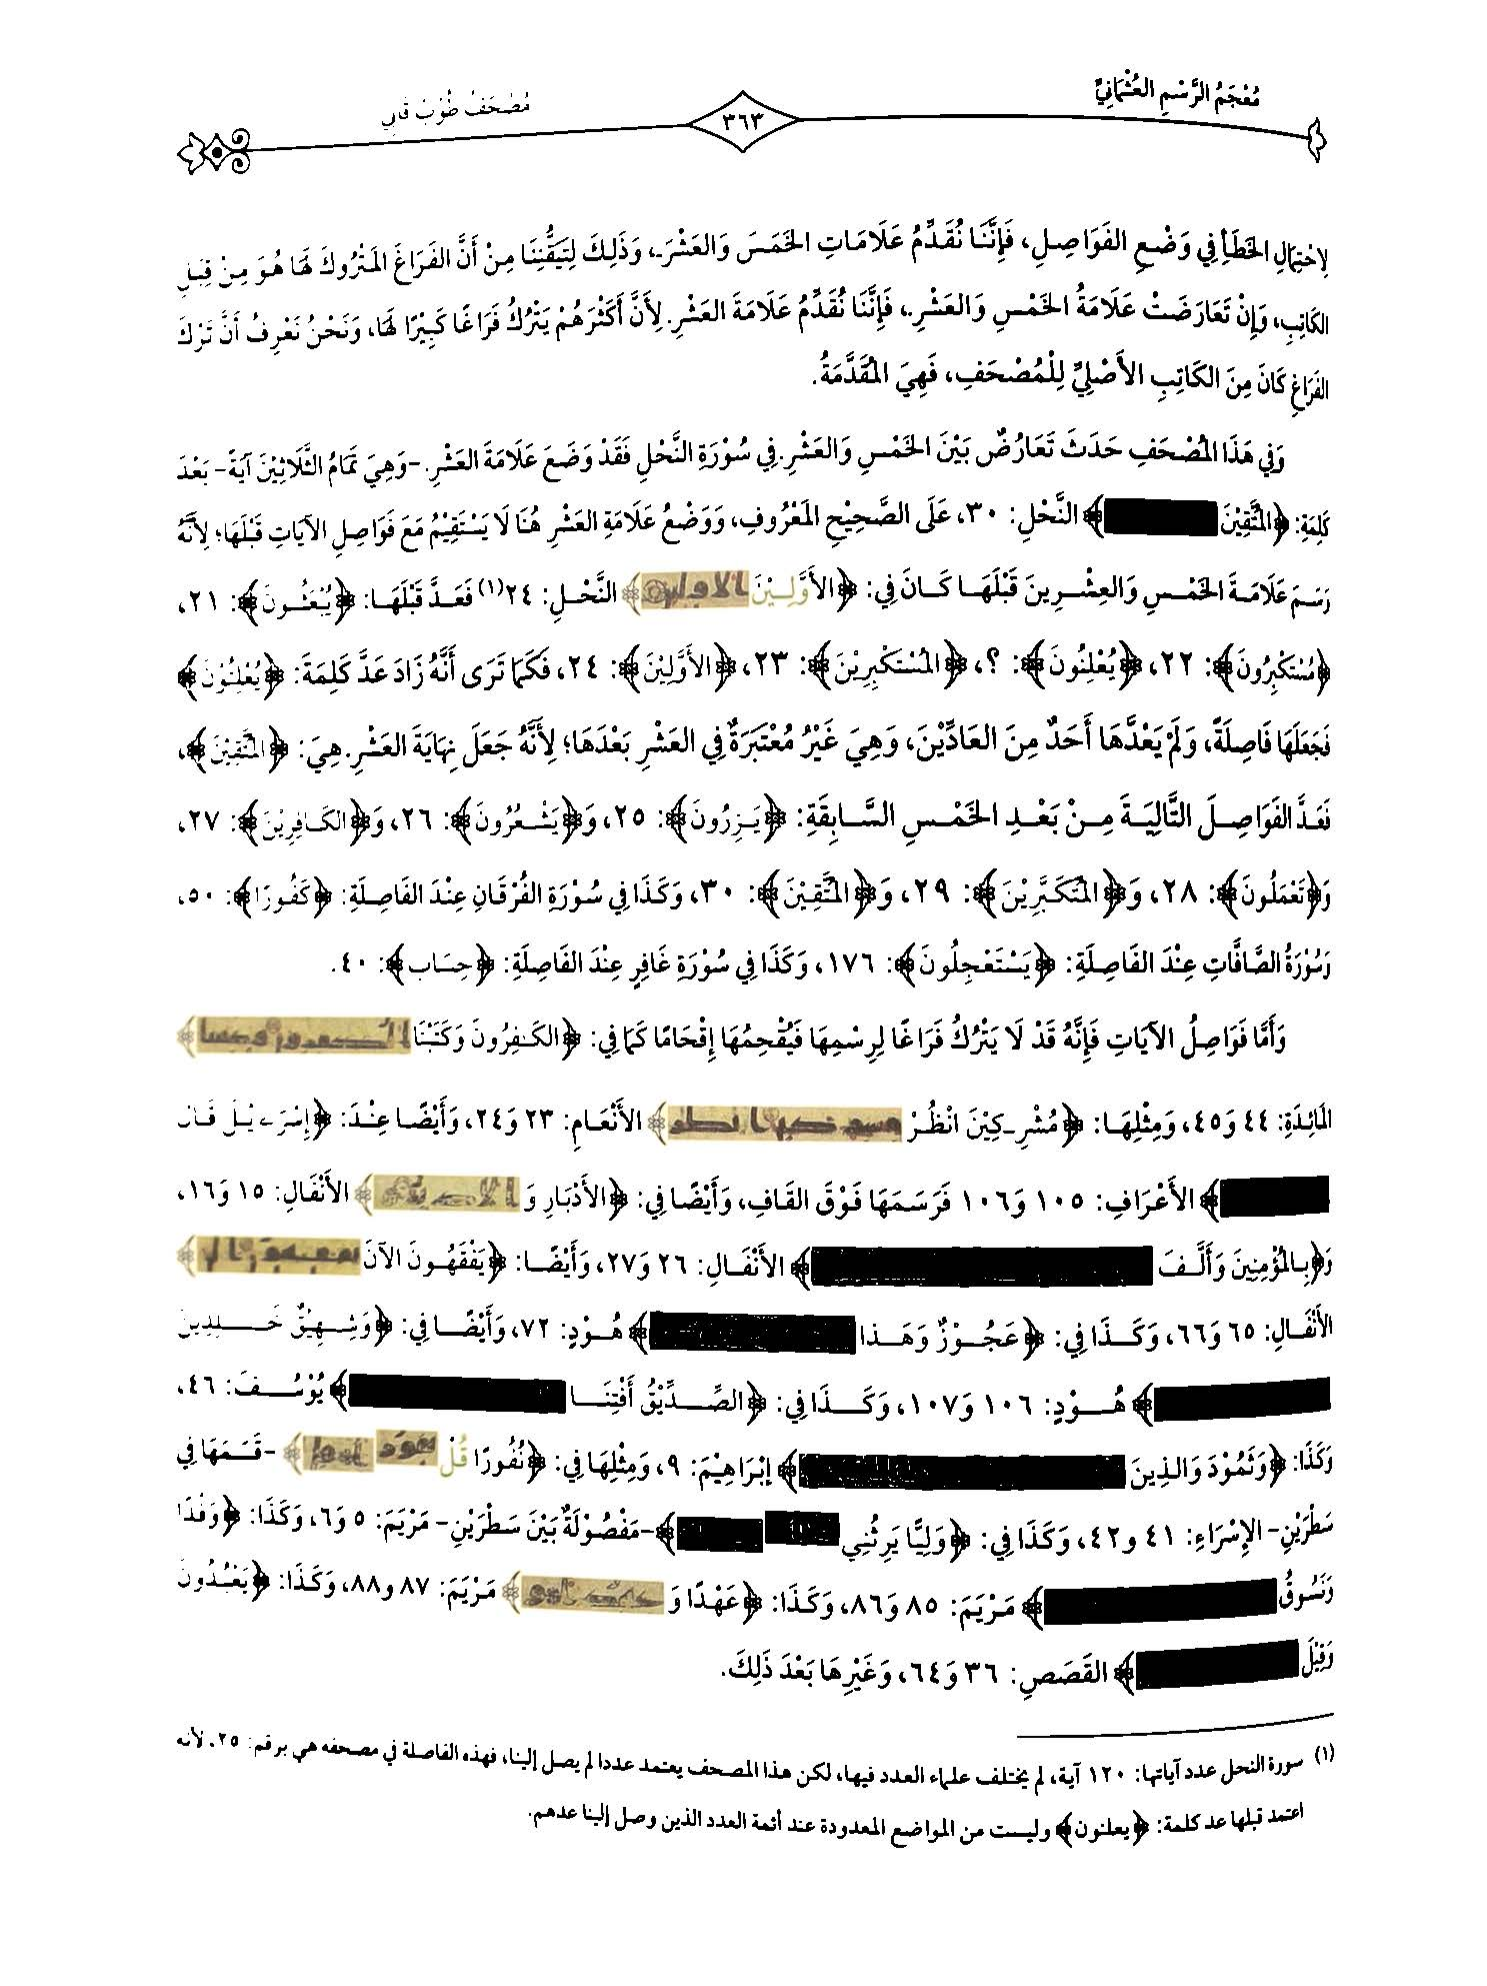 مُعْجَمُ الرَّسْمِ العُثْمَانِيِّ
٣٦٣
مُصْحَفُ طُوْبْ قَابِي
لِاحْتِمَالِ الخَطَأِ فِي وَضْعِ الفَوَاصِلِ، فَإِنَّنَا نُقَدِّمُ عَلَامَاتِ الخَمَسَ وَالعَشْرَ، وَذَلِكَ لِتَيَقُّنِنَا مِنْ أَنَّ الفَرَاغَ المَتْرُوكَ لَهَا هُوَ مِنْ قِبَلِ
الكَاتِبِ، وَإِنْ تَعَارَضَتْ عَلَامَةُ الخَمْسِ وَالعَشْرِ، فَإِنَّنَا نُقَدِّمُ عَلَامَةَ العَشْرِ لِأَنَّ أَكْثَرَهُمْ يَتْرُكُ فَرَاغًا كَبِيْرًا لَهَا، وَنَحْنُ نَعْرِفُ أَنَّ تَرْكَ
الفَرَاغِ كَانَ مِنَ الكَاتِبِ الأَصْلِيِّ لِلْمُصْحَفِ، فَهِيَ المُقَدَّمَةُ.
وَفِي هَذَا المُصْحَفِ حَدَثَ تَعَارُضٌ بَيْنَ الخَمْسِ وَالعَشْرِ فِي سُوْرَةِ النَّحْلِ فَقَدْ وَضَعَ عَلَامَةَ العَشْرِ -وَهِيَ تَمَامُ الثَّلَاثِيْنَ آيَةً- بَعْدَ
كَلِمَةِ: ﴿المُتَّقِيْنَ ﴾ النَّحْلِ: ٣٠، عَلَى الصَّحِيْحِ المَعْرُوفِ، وَوَضْعُ عَلَامَةِ العَشْرِ هُنَا لَا يَسْتَقِيْمُ مَعَ فَوَاصِلِ الآيَاتِ قَبْلَهَا؛ لِأَنَّهُ
رَسَمَ عَلَامَةَ الخَمْسِ وَالعِشْرِينَ قَبْلَهَا كَانَ فِي: ﴿الأَوَّلِيْنَ الاولىں﴾ النَّحْلِ: ٢٤(١) فَعَدَّ قَبْلَهَا: ﴿يُبْعَثُونَ﴾: ٢١،
﴿مُسْتَكْبِرُونَ﴾: ٢٢، ﴿يُعْلِنُونَ﴾: ؟، ﴿المُسْتَكْبِرِيْنَ﴾: ٢٣، ﴿الأَوَّلِيْنَ﴾: ٢٤، فَكَمَا تَرَى أَنَّهُ زَادَ عَدَّ كَلِمَةَ: ﴿يُعْلِنُوْنَ﴾
فَجَعَلَهَا فَاصِلَةً، وَلَمْ يَعْدَّهَا أَحَدٌ مِنَ العَادِّيْنَ، وَهِيَ غَيْرُ مُعْتَبَرَةٌ فِي العَشْرِ بَعْدَهَا؛ لِأَنَّهُ جَعَلَ نِهَايَةَ العَشْرِ هِيَ: ﴿المُتَّقِيْنَ﴾،
فَعَدَّ الفَوَاصِلَ التَّالِيَةَ مِنْ بَعْدِ الخَمْسِ السَّابِقَةِ: ﴿يَزِرُونَ﴾: ٢٥، وَ﴿يَشْعُرُونَ﴾: ٢٦، وَ﴿الكَافِرِيْنَ﴾: ٢٧،
وَ﴿تَعْمَلُونَ﴾: ٢٨، وَ﴿المُتَكَبِّرِيْنَ﴾: ٢٩، وَ﴿المُتَّقِيْنَ﴾: ٣٠، وَكَذَا فِي سُوْرَةِ الفُرْقَانِ عِنْدَ الفَاصِلَةِ: ﴿كَفُورًا﴾: ٥٠،
وَسُوْرَةُ الصَّافَّاتِ عِنْدَ الفَاصِلَةِ: ﴿يَسْتَعْجِلُونَ﴾: ١٧٦، وَكَذَا فِي سُوْرَةِ غَافِرٍ عِنْدَ الفَاصِلَةِ: ﴿حِسَابٍ﴾: ٤٠.
وَأَمَّا فَوَاصِلُ الآيَاتِ فَإِنَّهُ قَدْ لَا يَتْرُكُ فَرَاغًا لِرِسْمِهَا فَيُقْحِمُهَا إِقْحَامًا كَمَا فِي: ﴿الكَفِرُونَ وَكَتَبْنَا ﴾
المَائِدَةِ: ٤٤ وَ٤٥، وَمِثْلِهَا: ﴿مُشْرِكِيْنَ انْظُرْ ﴾ الأَنْعَامِ: ٢٣ وَ٢٤، وَأَيْضًا عِنْدَ: ﴿إِسْرَءِيْلَ قَالَ
﴾ الأَعْرَافِ: ١٠٥ وَ١٠٦ فَرَسَمَهَا فَوْقَ القَافِ، وَأَيْضًا فِي: ﴿الأَدْبَارِ وَ ﴾ الأَنْفَالِ: ١٥ وَ١٦،
وَ﴿بِالمُؤْمِنِينَ وَأَلَّفَ ﴾ الأَنْفَالِ: ٢٦ وَ٢٧، وَأَيْضًا: ﴿يَفْقَهُونَ الآنَ ﴾
الأَنْفَالِ: ٦٥ وَ٦٦، وَكَذَا فِي: ﴿عَجُوْزٌ وَهَذَا ﴾ هُوْدٍ: ٧٢، وَأَيْضًا فِي: ﴿وَشَهِيْقٌ خَلِدِينَ
﴾ هُوْدٍ: ١٠٦ وَ١٠٧، وَكَذَا فِي: ﴿الصِّدِّيْقُ أَفْتِنَا ﴾ يُوْسُفَ: ٤٦،
وَكَذَا: ﴿وَثَمُوْدَ وَالذِينَ ﴾ إِبْرَاهِيْمَ: ٩، وَمِثْلِهَا فِي: ﴿نُفُورًا قُلْ ﴾ -قَسَمَهَا فِي
سَطْرَيْنِ- الإِسْرَاءِ: ٤١ و٤٢، وَكَذَا فِي: ﴿وَلِيًّا يَرِثُنِي ﴾-مَفْصُوْلَةٌ بَيْنَ سَطْرَيْنِ- مَرْيَمَ: ٥ و٦، وَكَذَا: ﴿وَفْدًا
وَنَسُوقُ ﴾ مَرْيَمَ: ٨٥ وَ٨٦، وَكَذَا: ﴿عَهْدًا وَ ﴾ مَرْيَمَ: ٨٧ و٨٨، وَكَذَا: ﴿يَعْبُدُونَ
وَقِيْلَ ﴾ القَصَصِ: ٣٦ وَ٦٤، وَغَيْرِهَا بَعْدَ ذَلِكَ.
(١) سورة النحل عدد آياتها: ١٢٠ آية، لم يختلف علماء العدد فيها، لكن هذا المصحف يعتمد عددا لم يصل إلينا، فهذه الفاصلة في مصحفه هي برقم: ٢٥، لأنه
اعتمد قبلها عد كلمة: ﴿يعلنون﴾ وليست من المواضع المعدودة عند أئمة العدد الذين وصل إلينا عدهم.